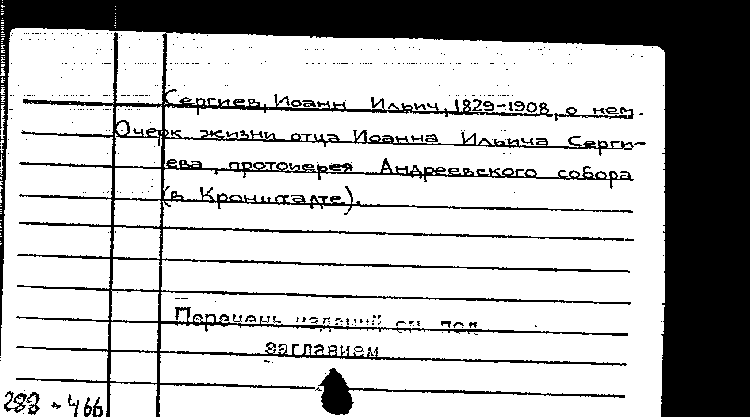 Сергиев, Иоанн Ильич, 1829-1908, о нем.
Очерк жизни отца Иоанна Ильича Серги-
ева, протоиерея Андреевского собора
(в Кронштадте).
Перечень изданий см. под
заглавием
288-466